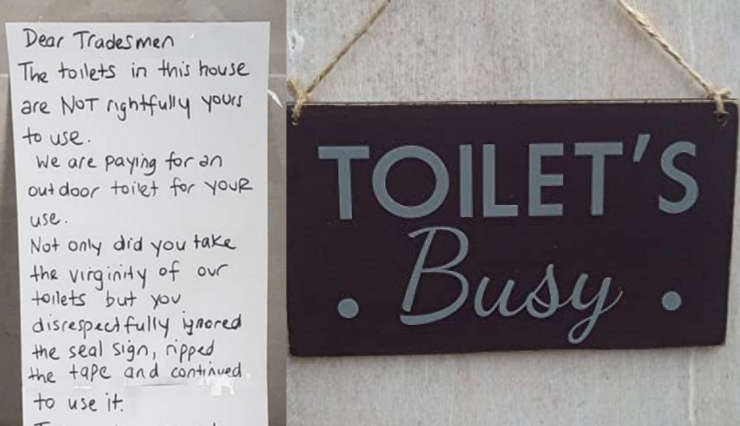 Dear Tradesmen
The toilets in this house
are NOT rightfully yours
to use.
We are paying for an
outdoor toilet for YOUR
use.
Not only did you take
the virginity of our
toilets but you
disrespectfully ignored
the seal sign, ripped
the tape and continued
to use it.
TOILET'S
. Busy .